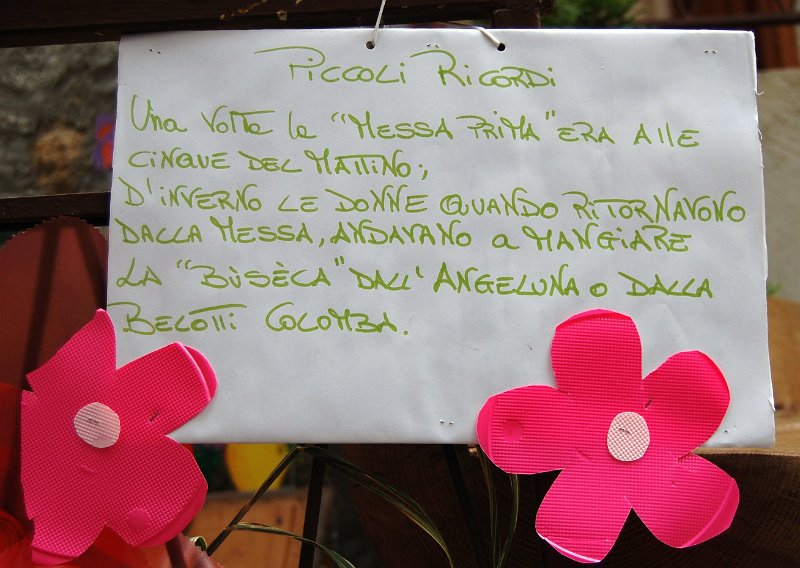 Piccoli Ricordi
Una volta la "Messa Prima" era alle
cinque del mattino;
d'inverno le donne quando ritornavono
dalla Messa, andavano a mangiare
la "Bùsèca" dall'Angeluna o dalla
Belotti Colomba.